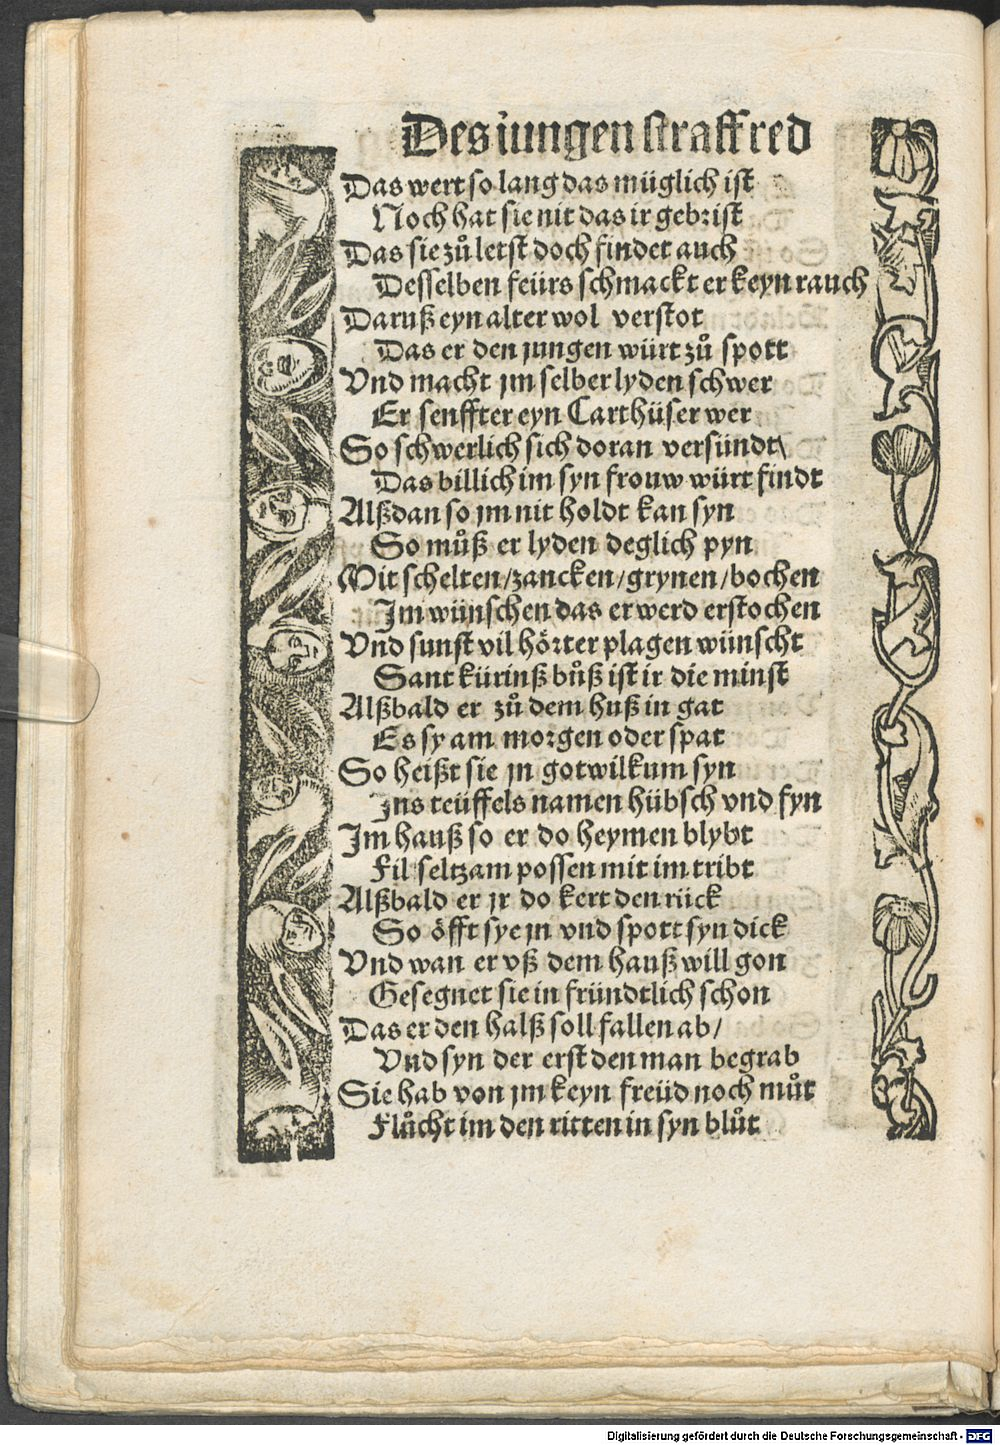 Des jungen straff red
Das wert so lang das müglich ist
Noch hat sie nit das ir gebrist
Das sie zů letst doch findet auch
Desselben feürs schmackt er keyn rauch
Daruß eyn alter wol verstot
Das er den jungen würt zů spott
Vnd macht jm selber lyden schwer
Er senffter eyn Carthüser wer
So schwerlich sich doran versündt\
Das billich im syn frouw würt findt
Alßdan so jm nit holdt kan syn
So můß er lyden deglich pyn
Mit schelten/zancken/grynen/bochen
Im wünschen das er werd erstochen
Vnd sunst vil hörter plagen wünscht
Sant kürinß bůß ist ir die minst
Alßbald er zů dem huß in gat
Es sy am morgen oder spat
So heißt sie jn gotwilkum syn
Ins teüffels namen hübsch vnd fyn
Im hauß so er do heymen blybt
Fil seltzam possen mit im tribt
Alßbald er jr do kert den rück
So öfft sye jn vnd spott syn dick
Vnd wan er vß dem hauß will gon
Gesegnet sie in fründtlich schon
Das er den halß soll fallen ab/
Vnd syn der erst den man begrab
Sie hab von jm keyn freüd noch můt
Flůcht im den ritten in syn blůt
Digitalisierung gefördert durch die Deutsche Forschungsgemeinschaft - DFG